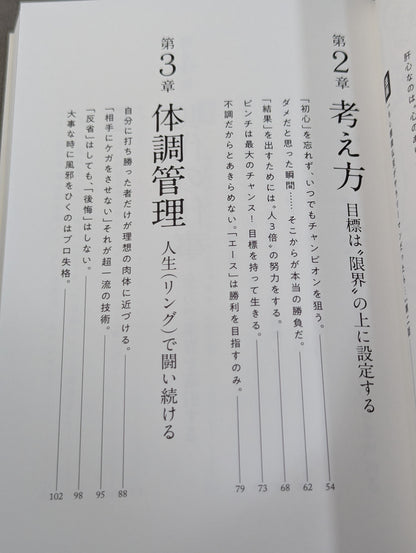 肝心なのは、心
第2章 考え方 目標は〝限界〟の上に設定する
「初心」を忘れず、いつでもチャンピオンを狙う。 54
ダメだと思った瞬間……そこからが本当の勝負だ。 62
「結果」を出すためには〝人3倍〟の努力をする。 68
ピンチは最大のチャンス! 目標を持って生きる。 73
不調だからとあきらめない。「エース」は勝利を目指すのみ。 79
第3章 体調管理 人生(リング)で闘い続ける
自分に打ち勝った者だけが理想の肉体に近づける。 88
「相手にケガをさせない」それが超一流の技術。 95
「反省」はしても、「後悔」はしない。 98
大事な時に風邪をひくのはプロ失格。 102